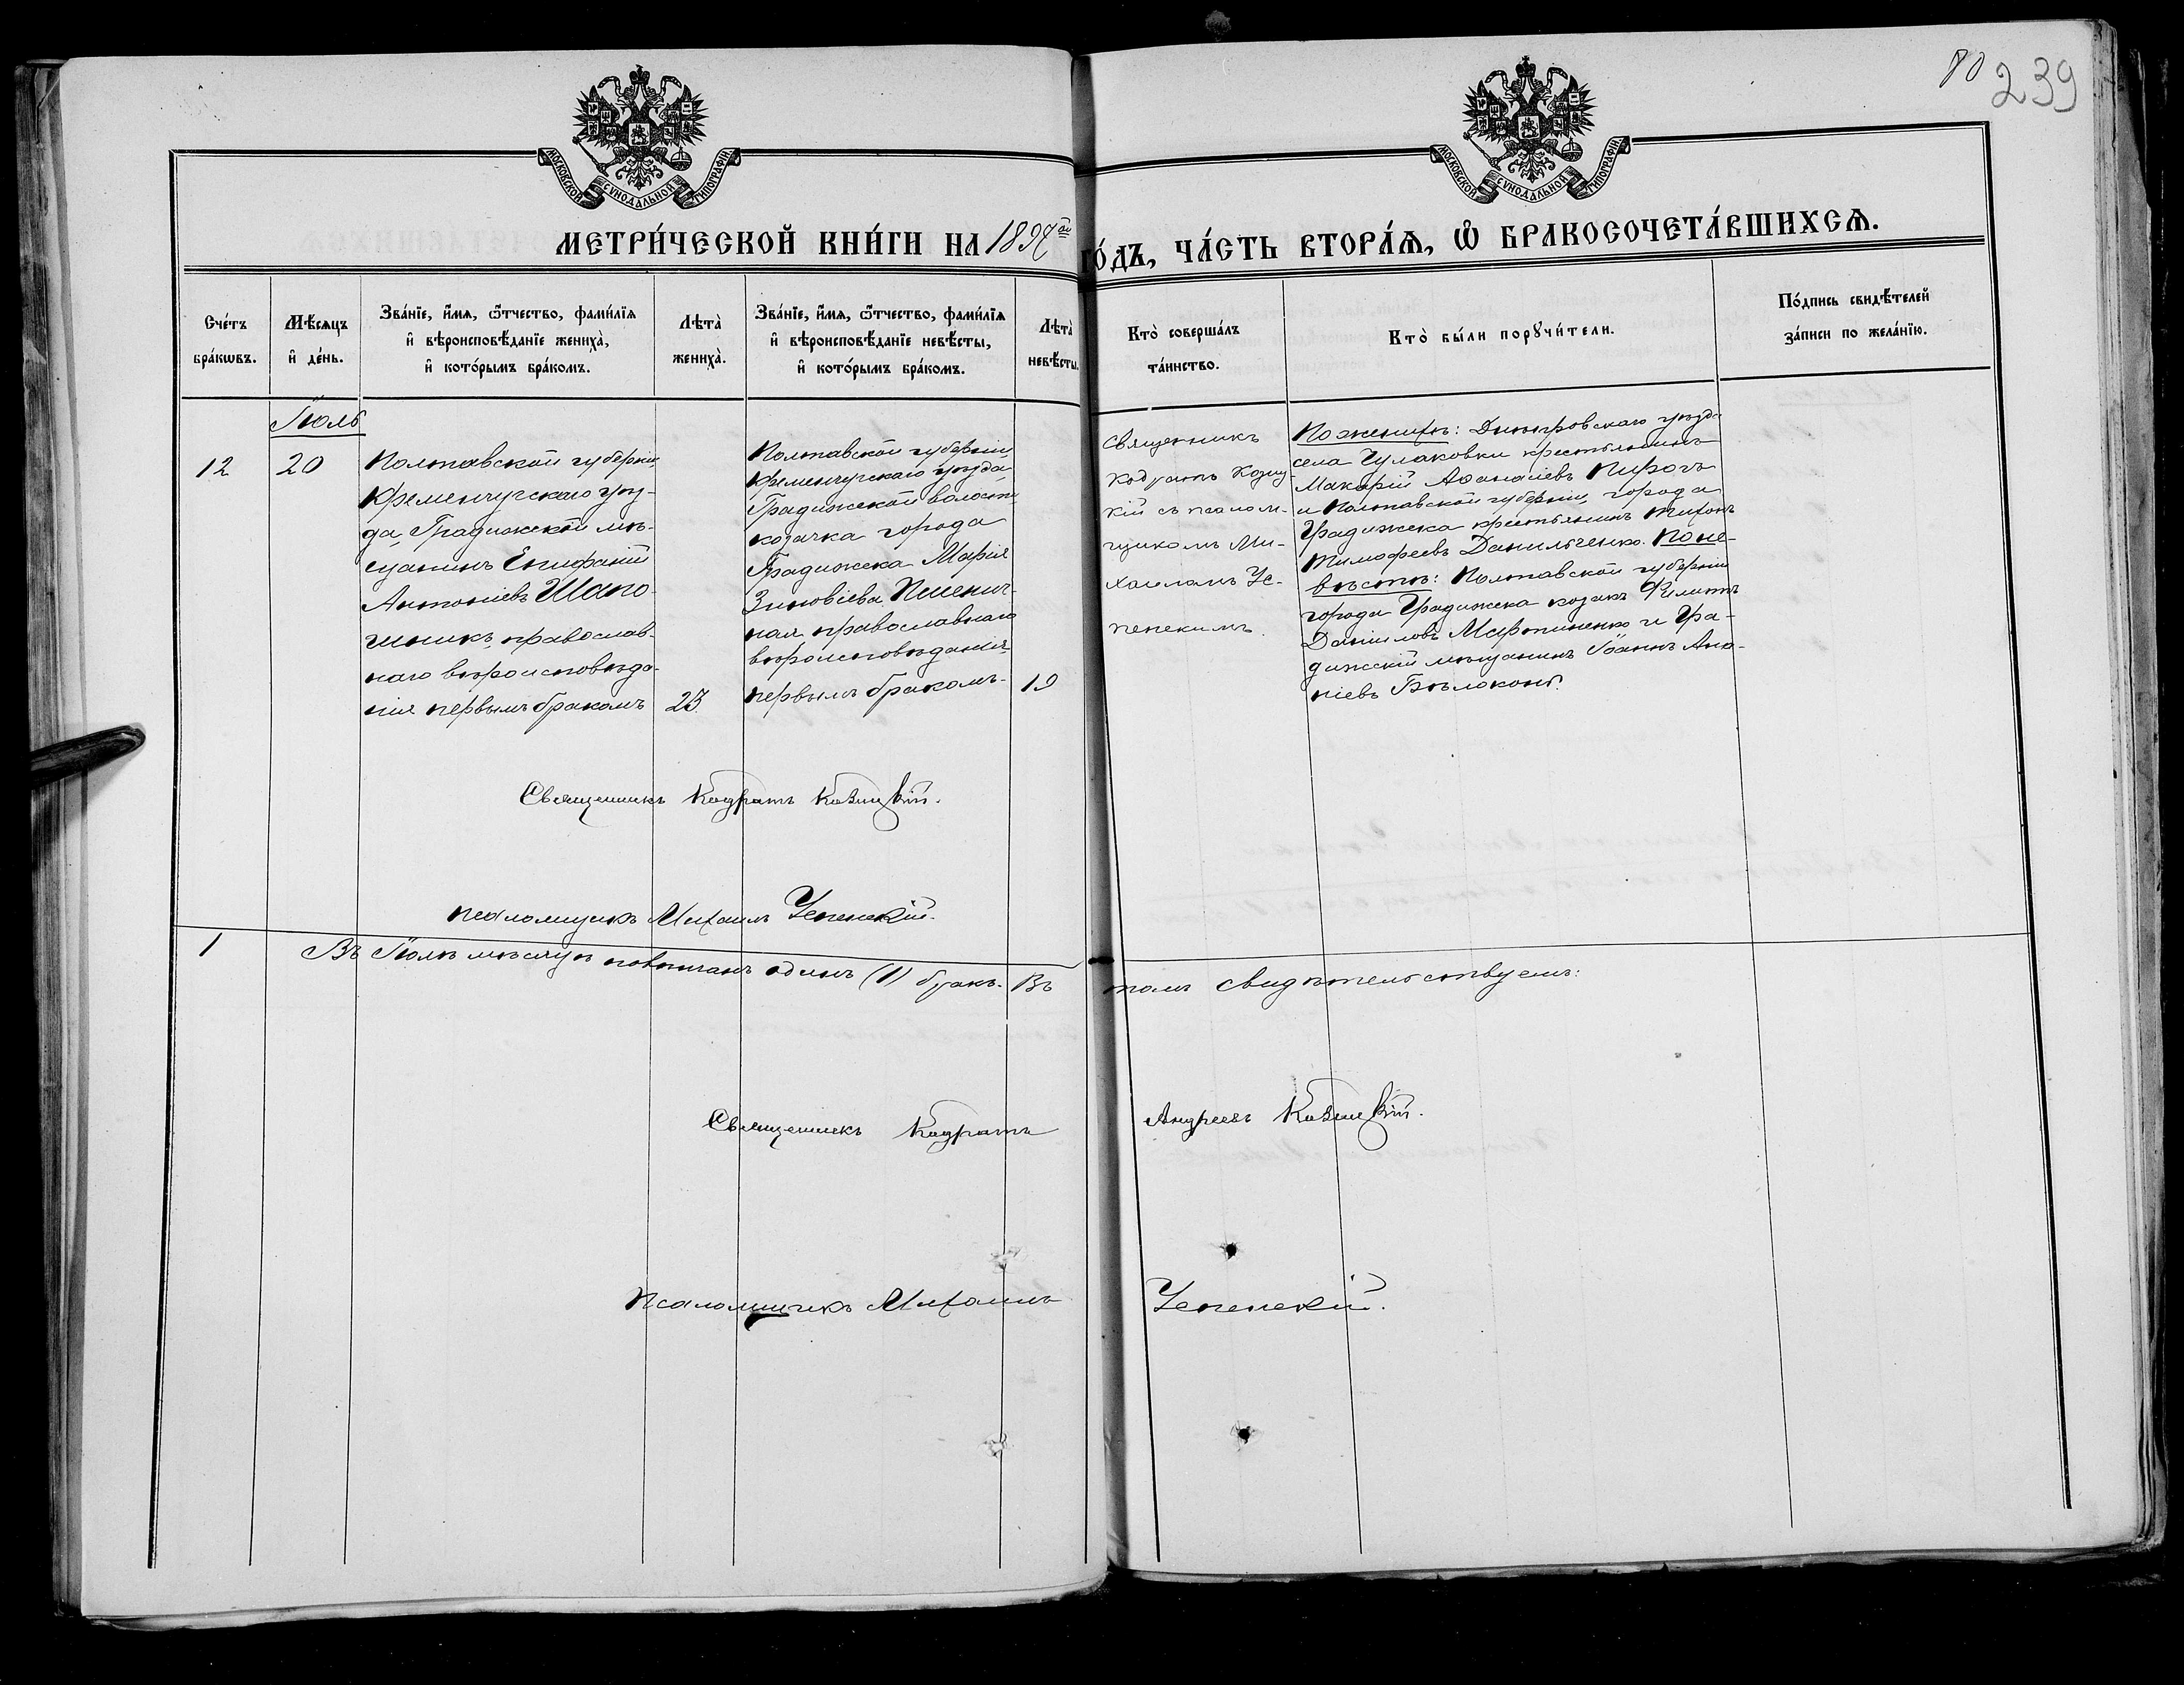 80 239
МОСКОВСКОЙ СѴНОДАЛЬНОЙ ТИПОГРАФІИ.
МОСКОВСКОЙ СѴНОДАЛЬНОЙ ТИПОГРАФІИ.
МЕТРИ́ЧЕСКОЙ КНИ́ГИ НА 1897ой ГО́ДЪ, ЧА́СТЬ ВТОРА́Ѧ, Ѿ БРАКОСОЧЕТА́ВШИХСѦ.
Сче́тъ
бра́кѡвъ.
Мѣ́сяцъ
и҆ де́нь.
Зва́нїе, и҆́мя, ѻ҆́тчество, фами́лїя
и҆ вѣроисповѣ́данїе жениха̀,
и҆ кото́рымъ бра́комъ.
Лѣта̀
жениха̀.
Зва́нїе, и҆́мя, ѻ҆́тчество, фами́лїя
и҆ вѣроисповѣ́данїе невѣ́сты,
и҆ кото́рымъ бра́комъ.
Лѣта̀
невѣ́сты.
Кто̀ соверша́лъ
та́инство.
Кто̀ бы́ли порꙋчи́тели.
По́дпись свидѣ́телей
за́писи по жела́нїю.
Іюль
12
20
Полтавской губерніи,
Кременчугскаго уѣз-
да, Градижскій мѣ-
щанинъ Епифаній
Антоніевъ Шапо-
шникъ, православ-
наго вѣроисповѣда-
нія первымъ бракомъ
23.
Полтавской губерніи
Кременчугскаго уѣзда
Градижской волости
козачка города
Градижска Марія
Зиновіева Пшенич-
ная православнаго
вѣроисповѣданія,
первымъ бракомъ
19
Священникъ
Кодратъ Козиц-
кій съ псалом-
щикомъ Ми-
хаиломъ Ус-
пенскимъ.
По женихѣ: Днѣпровскаго уѣзда
села Чулаковки крестьянинъ
Макарій Аѳанасіевъ Пирогъ
и Полтавской губерніи, города
Градижска крестьянинъ Тихонъ
Тимофеевъ Данильченко. По не-
вѣстѣ: Полтавской губерніи
города Градижска козакъ Филиппъ
Даниловъ Мартиненко и Гра-
дижскій мѣщанинъ Іоаннъ Ана-
ніевъ Бѣлоконь.
Священникъ Кодратъ Козицкій.
Псаломщикъ Михаилъ Успенскій.
1
Въ Іюлѣ мѣсяцѣ повѣнчанъ одинъ (1) бракъ. Въ томъ свидѣтельствуемъ:
Священникъ Кодратъ Андреевъ Козицкій.
Псаломщикъ Михаилъ Успенскій.